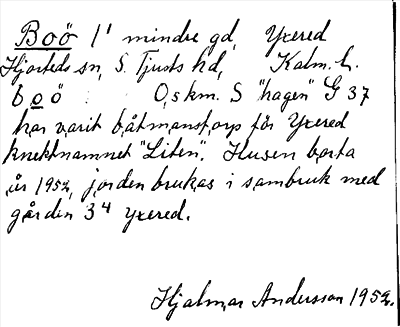 Boö 1' mindre gd, Yxered
Hjorteds sn, S. Tjusts hd, Kalm. l.
boö 0,5 km. S "hagen" G 37
har varit båtmanstorp för Yxered
knektnamnet "Liten". Husen borta
år 1952, jorden brukas i sambruk med
gården 3 4 yxered.
Hjalmar Andersson 1952.